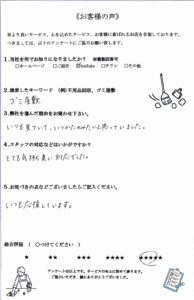 《お客様の声》
皆より良いサービス、心を込めたサービス、お客様に喜ばれるお店を目指しております。
つきましては、以下のアンケートにご協力お願い致します。
1.当社を何でお知りになりましたか？ ※複数回答可
□ホームページ □ご紹介 ☑YouTube □チラシ □その他
2.検索したキーワード （例)不用品回収、ゴミ屋敷
ゴミ屋敷
3.弊社を選んだ理由をお聞かせ下さい。
いつも見ていて、いつかたのみたいと思っていました。
4.スタッフの対応などはいかがですか？
とても気持ち良い対応でした。
5.お気づきの点などございましたらご記入ください。
いつも応援しています。
総合評価 （ ○つけてください ）
★ ★★ ★★★ ★★★★ ★★★★★
アンケートは以上です。サービスの向上に努めて参ります。
ご協力いただき、誠にありがとうございました。